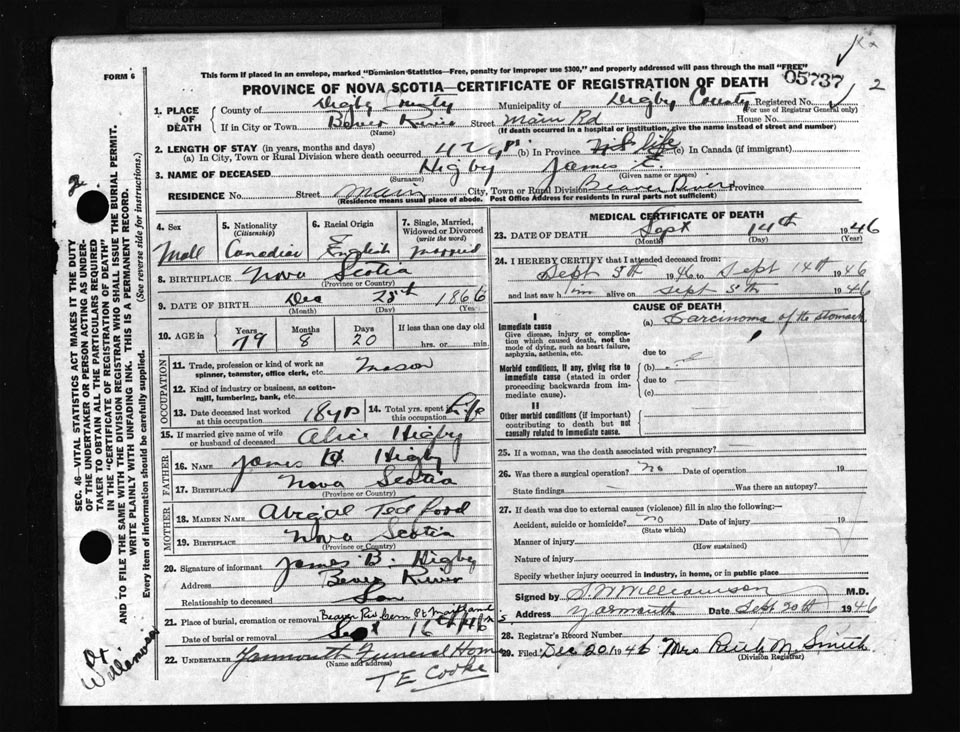 FORM 6
This form if placed in an envelope, marked “Dominion Statistics—Free, penalty for improper use $300,” and properly addressed will pass through the mail “FREE”
PROVINCE OF NOVA SCOTIA—CERTIFICATE OF REGISTRATION OF DEATH
05737 2
1. PLACE OF DEATH County of Digby County Municipality of Digby County Registered No. (For use of Registrar General only)
If in City or Town Beaver River (Name) Street Main Rd House No.
(If death occurred in a hospital or institution, give the name instead of street and number)
2. LENGTH OF STAY (in years, months and days)
(a) In City, Town or Rural Division where death occurred 42 yrs (b) In Province N S life (c) In Canada (if immigrant)
3. NAME OF DECEASED Higby (Surname) James E. (Given name or names)
RESIDENCE No. Street Main City, Town or Rural Division Beaver River Province
(Residence means usual place of abode. Post Office Address for residents in rural parts not sufficient)
4. Sex Mall
5. Nationality (Citizenship) Canadian
6. Racial Origin English
7. Single, Married, Widowed or Divorced (write the word) married
8. BIRTHPLACE Nova Scotia (Province or Country)
9. DATE OF BIRTH Dec (Month) 25th (Day) 1866 (Year)
10. AGE in Years 79 Months 8 Days 20 If less than one day old hrs. or min.
OCCUPATION
11. Trade, profession or kind of work as spinner, teamster, office clerk, etc. Mason
12. Kind of industry or business, as cotton-mill, lumbering, bank, etc.
13. Date deceased last worked at this occupation 18 yrs 14. Total yrs. spent in this occupation Life
15. If married give name of wife or husband of deceased Alice Higby
FATHER
16. NAME James Higby
17. BIRTHPLACE Nova Scotia (Province or Country)
MOTHER
18. MAIDEN NAME Abigal Ted ford
19. BIRTHPLACE Nova Scotia (Province or Country)
20. Signature of informant James B. Higby
Address Bever River
Relationship to deceased Son
21. Place of burial, cremation or removal Beaver Riv Cem Pt Maitland
Date of burial or removal Sept 16
22. UNDERTAKER Yarmouth Funeral Home
(Name and address)
T E Cooke
MEDICAL CERTIFICATE OF DEATH
23. DATE OF DEATH Sept (Month) 14th (Day) 1946 (Year)
24. I HEREBY CERTIFY that I attended deceased from:
Sept 5th 1946 to Sept 14th 1946
and last saw him alive on Sept 5th 1946
CAUSE OF DEATH
I
Immediate cause (a) Carcinoma of the stomach
Give disease, injury or complication which caused death, not the mode of dying, such as heart failure, asphyxia, asthenia, etc.
due to
Morbid conditions, if any, giving rise to immediate cause (stated in order proceeding backwards from immediate cause).
(b)
due to
(c)
II
Other morbid conditions (if important) contributing to death but not causally related to immediate cause.
25. If a woman, was the death associated with pregnancy?
26. Was there a surgical operation? no Date of operation 19
State findings Was there an autopsy?
27. If death was due to external causes (violence) fill in also the following:—
Accident, suicide or homicide? no (State which) Date of injury 19
Manner of injury (How sustained)
Nature of injury
Specify whether injury occurred in industry, in home, or in public place
Signed by S. W Williamson M.D.
Address Yarmouth Date Sept 20th 1946
28. Registrar's Record Number
29. Filed Dec 20 1946 Mrs Ruth M. Smith
(Division Registrar)
SEC. 46—VITAL STATISTICS ACT MAKES IT THE DUTY
OF THE UNDERTAKER OR PERSON ACTING AS UNDER-
TAKER TO OBTAIN ALL THE PARTICULARS REQUIRED
IN THE “CERTIFICATE OF REGISTRATION OF DEATH”
AND TO FILE THE SAME WITH THE DIVISION REGISTRAR WHO SHALL ISSUE THE BURIAL PERMIT.
WRITE PLAINLY WITH UNFADING INK. THIS IS A PERMANENT RECORD.
Every item of information should be carefully supplied. (See reverse side for instructions.)
Dr